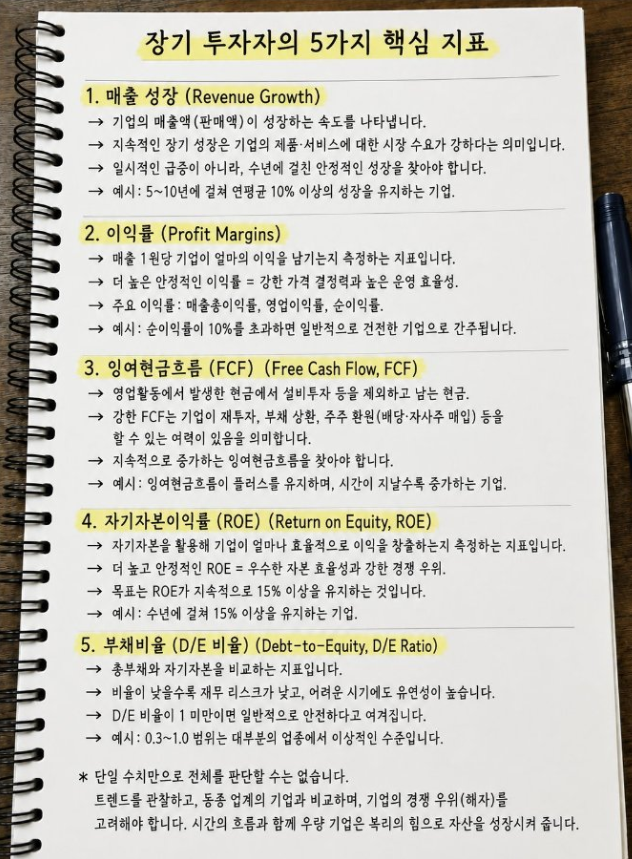 장기 투자자의 5가지 핵심 지표
1. 매출 성장 (Revenue Growth)
→ 기업의 매출액(판매액)이 성장하는 속도를 나타냅니다.
→ 지속적인 장기 성장은 기업의 제품·서비스에 대한 시장 수요가 강하다는 의미입니다.
→ 일시적인 급증이 아니라, 수년에 걸친 안정적인 성장을 찾아야 합니다.
→ 예시: 5~10년에 걸쳐 연평균 10% 이상의 성장을 유지하는 기업.
2. 이익률 (Profit Margins)
→ 매출 1원당 기업이 얼마의 이익을 남기는지 측정하는 지표입니다.
→ 더 높은 안정적인 이익률 = 강한 가격 결정력과 높은 운영 효율성.
→ 주요 이익률: 매출총이익률, 영업이익률, 순이익률.
→ 예시: 순이익률이 10%를 초과하면 일반적으로 건전한 기업으로 간주됩니다.
3. 잉여현금흐름 (FCF) (Free Cash Flow, FCF)
→ 영업활동에서 발생한 현금에서 설비투자 등을 제외하고 남는 현금.
→ 강한 FCF는 기업이 재투자, 부채 상환, 주주 환원(배당·자사주 매입) 등을
할 수 있는 여력이 있음을 의미합니다.
→ 지속적으로 증가하는 잉여현금흐름을 찾아야 합니다.
→ 예시: 잉여현금흐름이 플러스를 유지하며, 시간이 지날수록 증가하는 기업.
4. 자기자본이익률 (ROE) (Return on Equity, ROE)
→ 자기자본을 활용해 기업이 얼마나 효율적으로 이익을 창출하는지 측정하는 지표입니다.
→ 더 높고 안정적인 ROE = 우수한 자본 효율성과 강한 경쟁 우위.
→ 목표는 ROE가 지속적으로 15% 이상을 유지하는 것입니다.
→ 예시: 수년에 걸쳐 15% 이상을 유지하는 기업.
5. 부채비율 (D/E 비율) (Debt-to-Equity, D/E Ratio)
→ 총부채와 자기자본을 비교하는 지표입니다.
→ 비율이 낮을수록 재무 리스크가 낮고, 어려운 시기에도 유연성이 높습니다.
→ D/E 비율이 1 미만이면 일반적으로 안전하다고 여겨집니다.
→ 예시: 0.3~1.0 범위는 대부분의 업종에서 이상적인 수준입니다.
* 단일 수치만으로 전체를 판단할 수는 없습니다.
트렌드를 관찰하고, 동종 업계의 기업과 비교하며, 기업의 경쟁 우위(해자)를
고려해야 합니다. 시간의 흐름과 함께 우량 기업은 복리의 힘으로 자산을 성장시켜 줍니다.